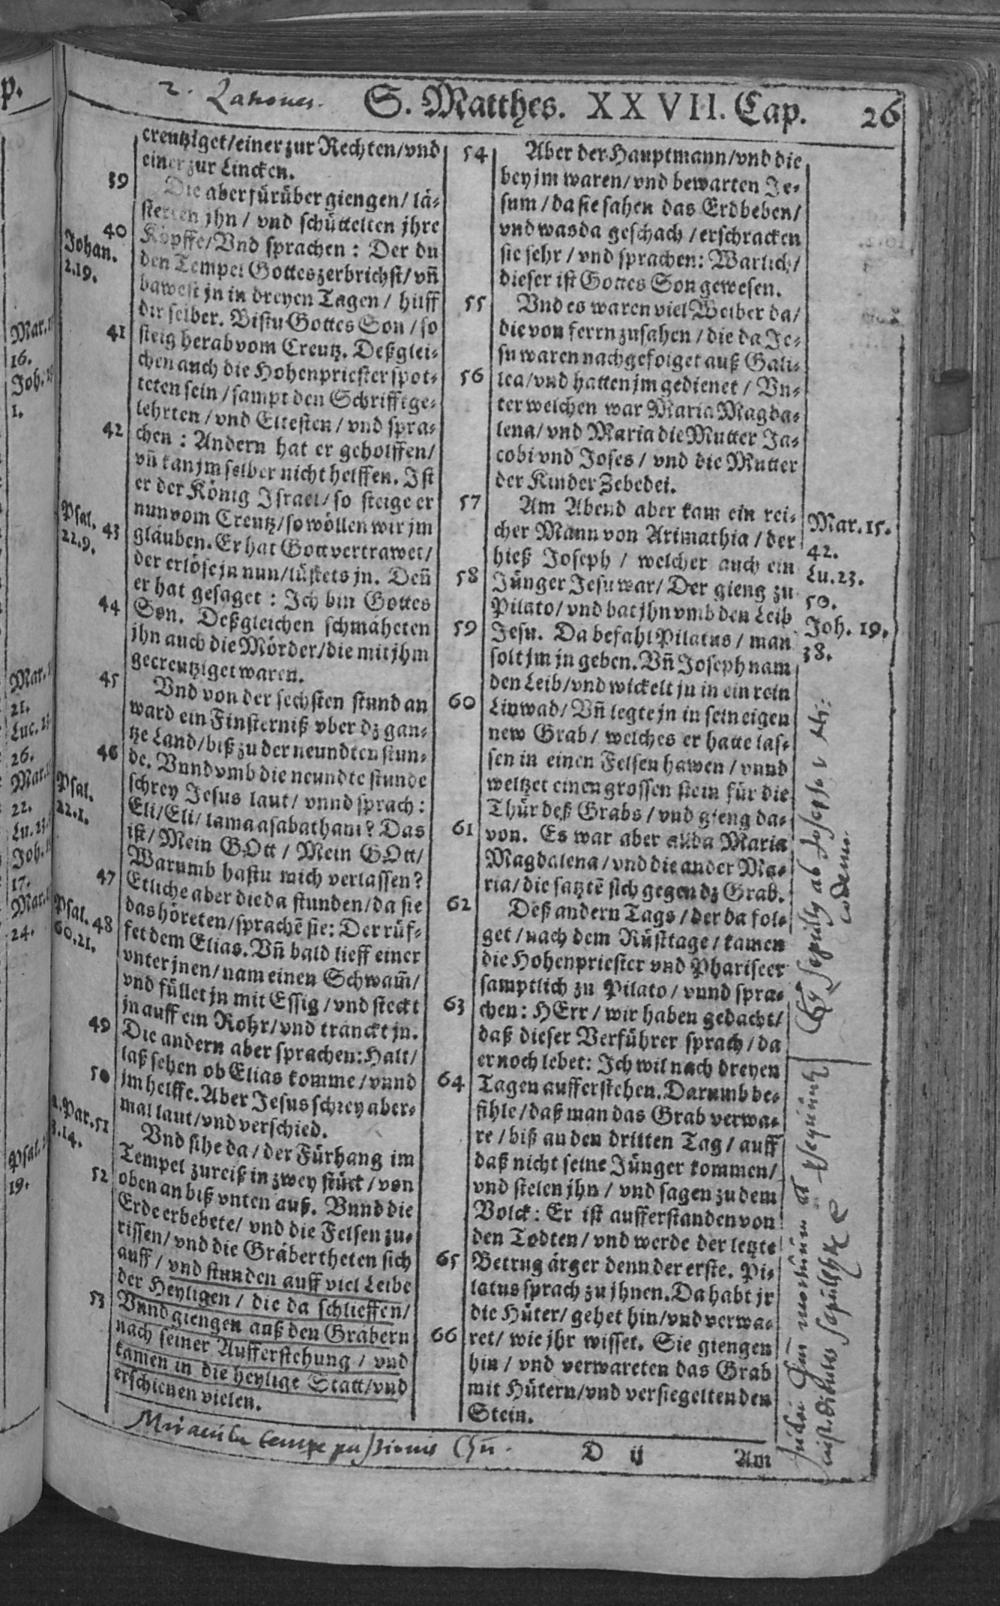 2. Latrones.
S. Matthes. XXVII. Cap. 26
creutziget/einer zur Rechten/vnd
einer zur Lincken.
39 Die aber fürüber giengen/lä-
sterten jhn/vnd schüttelten jhre
40 Köpffe/Vnd sprachen: Der du
Johan. 2.19.
den Tempel Gottes zerbrichst/vñ
bawest jn in dreyen Tagen/hilff
dir selber. Bistu Gottes Son/so
41 steig herab vom Creutz. Deßglei-
chen auch die Hohenpriester spot-
teten sein/sampt den Schrifftge-
lehrten/vnd Eltesten/vnd spra-
42 chen: Andern hat er geholffen/
vñ kan jm selber nicht helffen. Ist
er der König Israel/so steige er
nun vom Creutz/so wöllen wir jm
Psal. 22.9.
43 gläuben. Er hat Gott vertrawet/
der erlöse jn nun/lüstets jn. Deñ
er hat gesaget: Ich bin Gottes
44 Son. Deßgleichen schmäheten
jhn auch die Mörder/die mit jhm
gecreutziget waren.
45 Vnd von der sechsten stund an
ward ein Finsterniß vber dz gan-
tze Land/biß zu der neundten stun-
46 de. Vnnd vmb die neundte stunde
Psal. 22.1.
schrey Jesus laut/vnnd sprach:
Eli/Eli/lama asabathani? Das
ist/Mein GOtt/Mein GOtt/
Warumb hastu mich verlassen?
47 Etliche aber die da stunden/da sie
das höreten/sprachē sie: Der rüf-
Psal. 60.21.
48 fet dem Elias. Vñ bald lieff einer
vnter jnen/nam einen Schwam̃/
vnd füllet jn mit Essig/vnd steckt
jn auff ein Rohr/vnd tränckt jn.
49 Die andern aber sprachen: Halt/
laß sehen ob Elias komme/vnnd
50 jm helffe. Aber Jesus schrey aber-
mal laut/vnd verschied.
Par. 3.14.
51 Vnd sihe da/der Fürhang im
Tempel zureiß in zwey stück/von
52 oben an biß vnten auß. Vnnd die
Erde erbebete/vnd die Felsen zu-
rissen/vnd die Gräber theten sich
auff/vnd stunden auff viel Leibe
der Heyligen/die da schlieffen/
53 Vnnd giengen auß den Gräbern
nach seiner Aufferstehung/vnd
kamen in die heylige Statt/vnd
erschienen vielen.
Miracula tempe passionis
54 Aber der Hauptmann/vnd die
bey jm waren/vnd bewarten Je-
sum/da sie sahen das Erdbeben/
vnd was da geschach/erschracken
sie sehr/vnd sprachen: Warlich/
dieser ist Gottes Son gewesen.
55 Vnd es waren viel Weiber da/
die von ferrn zusahen/die da Je-
su waren nachgefolget auß Gali-
56 lea/vnd hatten jm gedienet/Vn-
ter welchen war Maria Magda-
lena/vnd Maria die Mutter Ja-
cobi vnd Joses/vnd die Mutter
der Kinder Zebedei.
57 Am Abend aber kam ein rei-
cher Mann von Arimathia/der
hieß Joseph/welcher auch ein
58 Jünger Jesu war/Der gieng zu
Pilato/vnd bat jhn vmb den Leib
59 Jesu. Da befahl Pilatus/man
solt jm jn geben. Vñ Joseph nam
den Leib/vnd wickelt jn in ein rein
60 Linwad/Vñ legte jn in sein eigen
new Grab/welches er hatte las-
sen in einen Felsen hawen/vnnd
weltzet einen grossen stein für die
Thür deß Grabs/vnd gieng da-
61 von. Es war aber allda Maria
Magdalena/vnd die ander Ma-
ria/die satztē sich gegen dz Grab.
62 Deß andern Tags/der da fol-
get/nach dem Rüsttage/kamen
die Hohenpriester vnd Phariseer
samptlich zu Pilato/vnnd spra-
63 chen: HErr/wir haben gedacht/
daß dieser Verführer sprach/da
er noch lebet: Ich wil nach dreyen
64 Tagen aufferstehen. Darumb be-
fihle/daß man das Grab verwa-
re/biß an den dritten Tag/auff
daß nicht seine Jünger kommen/
vnd stelen jhn/vnd sagen zu dem
Volck: Er ist aufferstanden von
den Todten/vnd werde der letzte
65 Betrug ärger denn der erste. Pi-
latus sprach zu jhnen. Da habt jr
die Hüter/gehet hin/vnd verwa-
66 ret/wie jhr wisset. Sie giengen
hin/vnd verwareten das Grab
mit Hütern/vnd versiegelten den
Stein.
Mar. 15.
42.
Lu. 23.
50.
Joh. 19.
38.
D ij Am